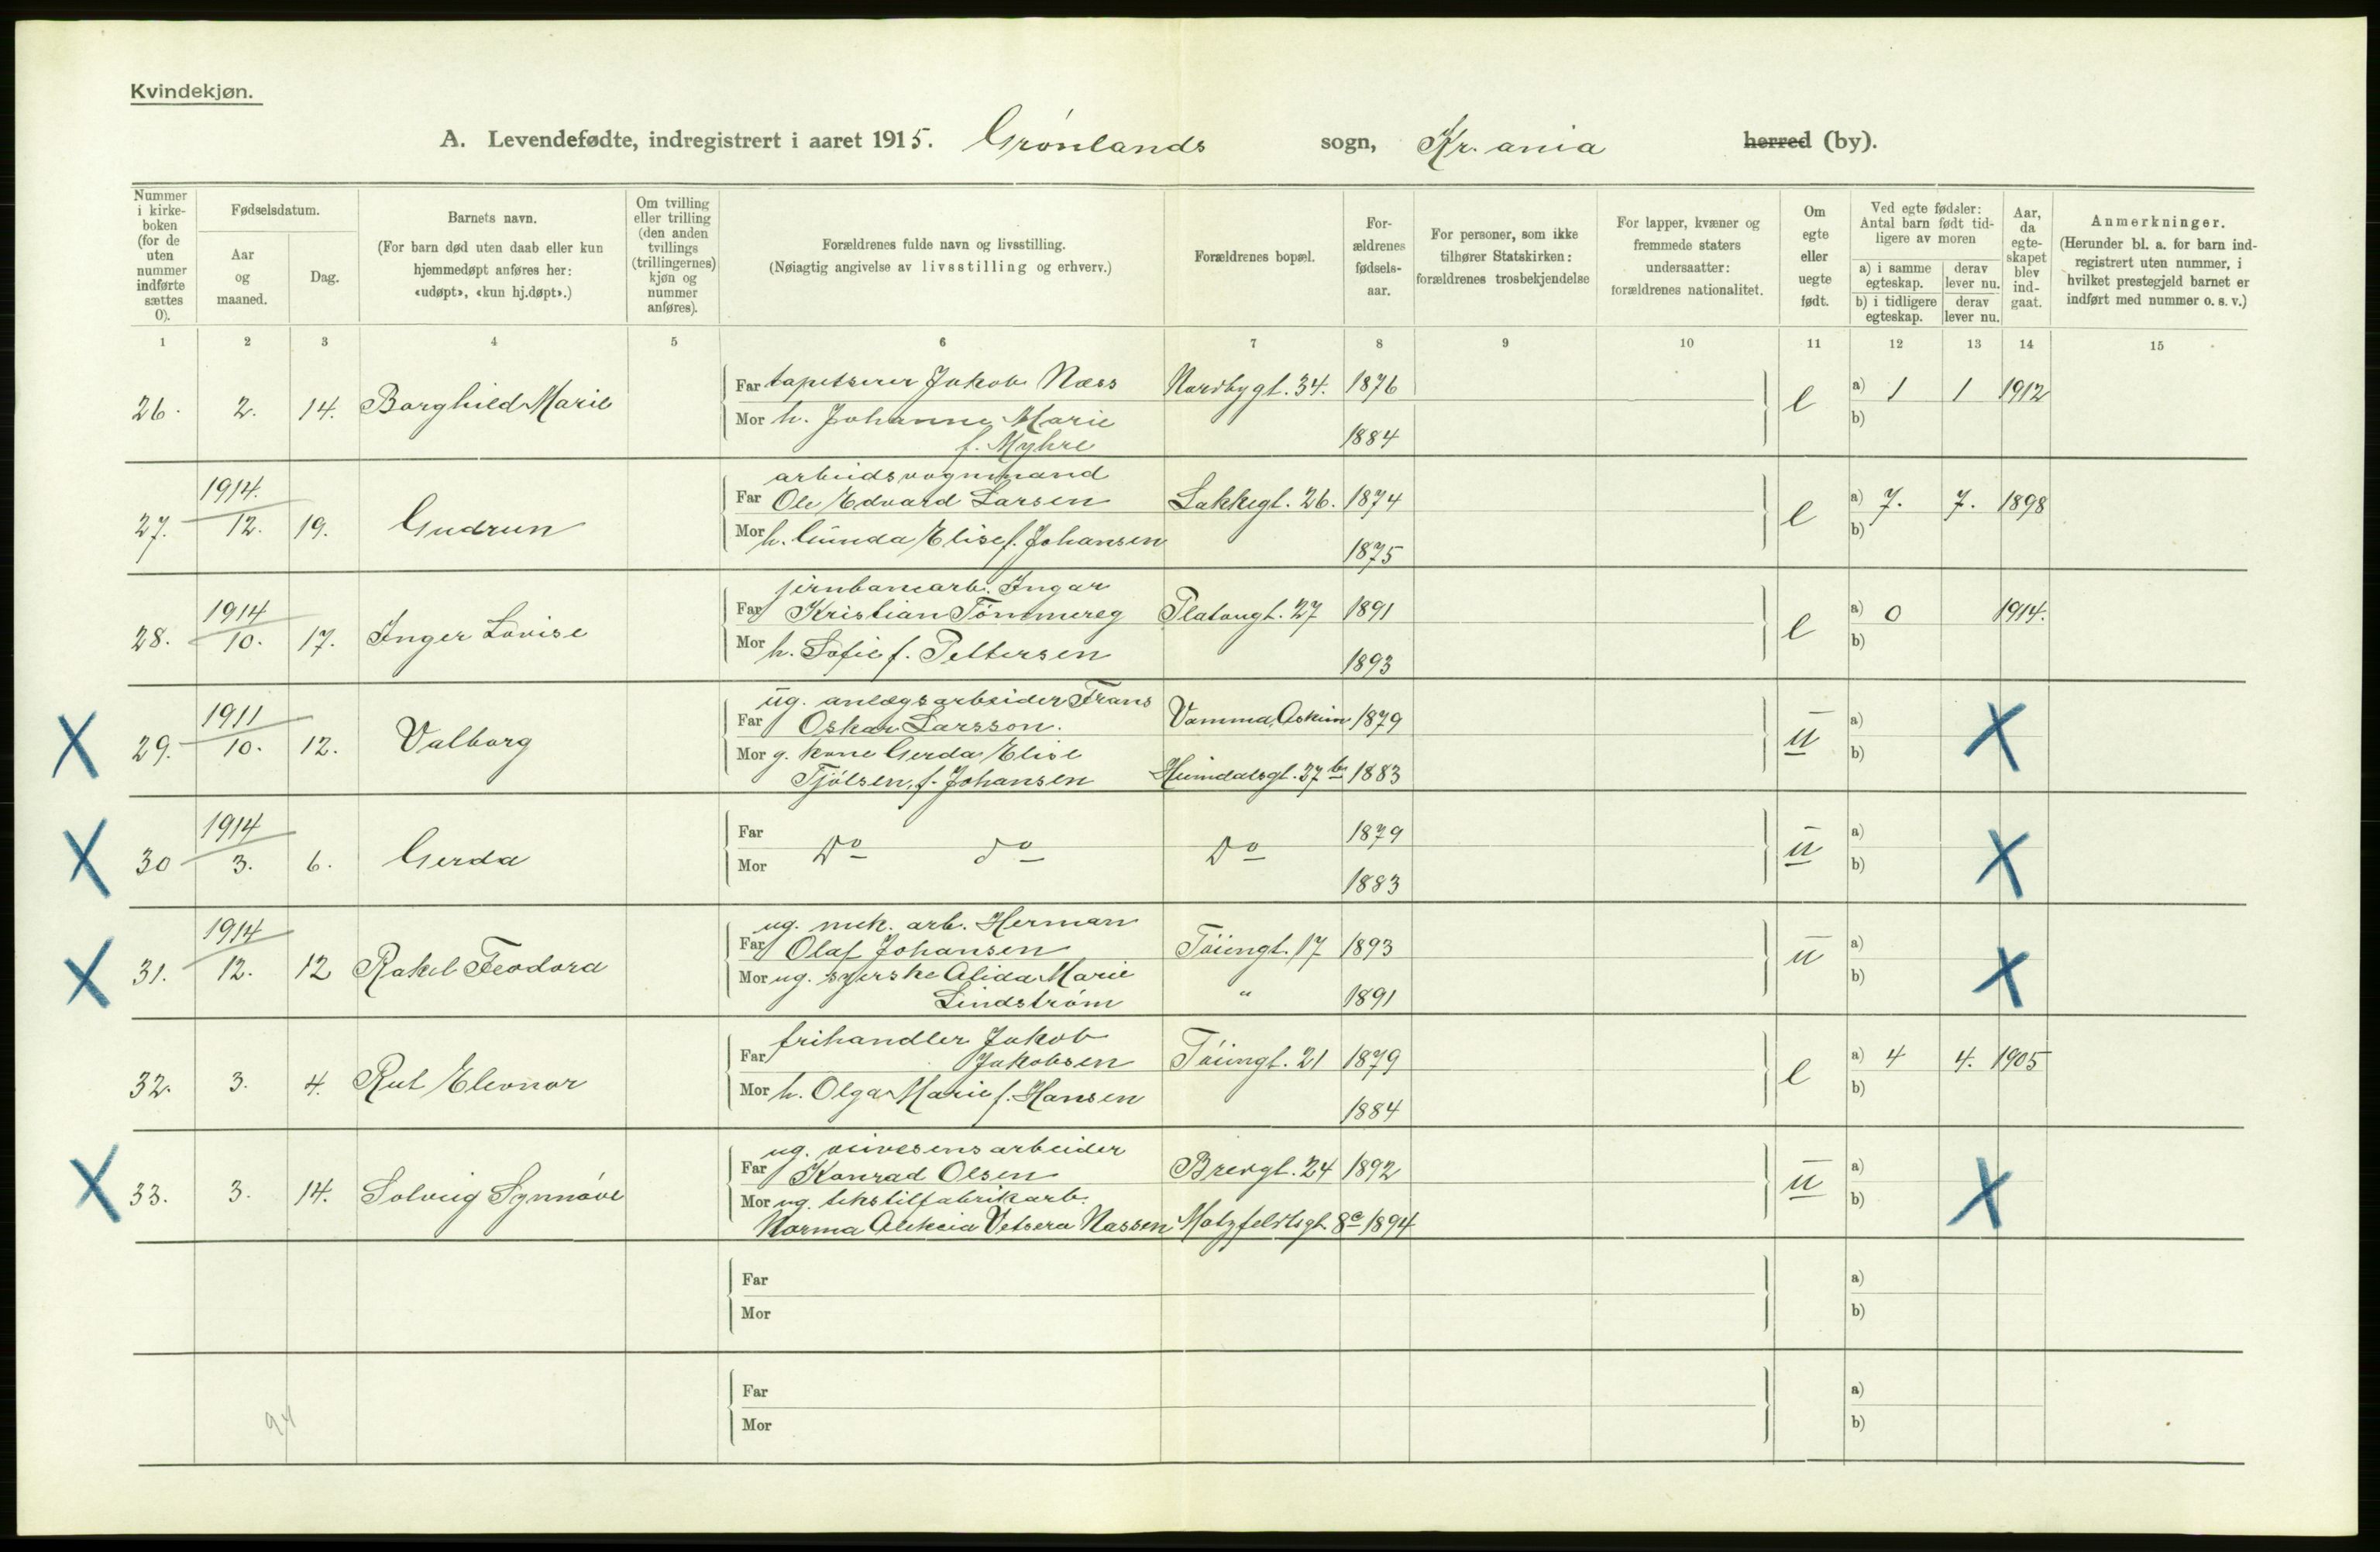 Kvindekjøn.
A. Levendefødte, indregistrert i aaret 1915. Grønlands sogn, Kr.ania herred (by).
Nummer i kirkeboken (for de uten nummer indførte sættes 0).
Fødselsdatum.
Aar og maaned.
Dag.
Barnets navn.
(For barn død uten daab eller kun hjemmedøpt anføres her: «udøpt», «kun hj.døpt».)
Om tvilling eller trilling (den anden tvillings (trillingernes) kjøn og nummer anføres).
Forældrenes fulde navn og livsstilling.
(Nøiagtig angivelse av livsstilling og erhverv.)
Forældrenes bopæl.
Forældrenes fødselsaar.
For personer, som ikke tilhører Statskirken: forældrenes trosbekjendelse
For lapper, kvæner og fremmede staters undersaatter: forældrenes nationalitet.
Om egte eller uegte født.
Ved egte fødsler: Antal barn født tidligere av moren
a) i samme egteskap. derav lever nu.
b) i tidligere egteskap. derav lever nu.
Aar, da egteskapet blev indgaat.
Anmerkninger.
(Herunder bl. a. for barn indregistrert uten nummer, i hvilket prestegjeld barnet er indført med nummer o. s. v.)
1 2 3 4 5 6 7 8 9 10 11 12 13 14 15
26. 2. 14. Borghild Marie
Far tapetserer Jakob Næss Nordbygt. 34. 1876
Mor h. Johanne Marie
f. Myhre 1884
e a) 1 1 1912
b)
1914.
27. 12. 19. Gudrun
arbeidsvognmand
Far Ole Edvard Larsen Lakkegt. 26. 1874
Mor h. Gunda Elise f. Johansen
1875
e a) 7. 7. 1898
b)
1914
28. 10. 17. Inger Lovise
jernbanearb. Ingar
Far Kristian Tömmereg Platougt. 27 1891
Mor h. Sofie f. Pettersen
1893
e a) 0 1914.
b)
1911
X 29. 10. 12. Valborg
ug. anlægsarbeider Frans
Far Oskar Larsson. Vamma, Askim 1879
Mor g. kone Gerda Elise
Tjölsen, f. Johansen Heimdalsgt. 37 b 1883
u a) X
b)
1914
X 30 3. 6. Gerda
Far Do do Do 1879
Mor 1883
u a) X
b)
1914
X 31. 12. 12 Rakel Feodora
ug. mek. arb. Herman
Far Olaf Johansen Töiengt. 17 1893
Mor ug. syerske Alida Marie
Lindström " 1891
u a) X
b)
32. 3. 4. Rut Eleonor
frihandler Jakob
Far Jakobsen Töiengt. 21 1879
Mor h. Olga Marie f. Hansen
1884
e a) 4 4. 1905
b)
X 33. 3. 14. Solveig Synnöve
ug. veivesensarbeider
Far Konrad Olsen Brevgt. 24 1892
Mor ug. tekstilfabrikarb.
Norma Vetsera Nassen Motzfeldtsgt. 8c 1894
u a) X
b)
Far
Mor
a)
b)
Far
Mor
a)
b)